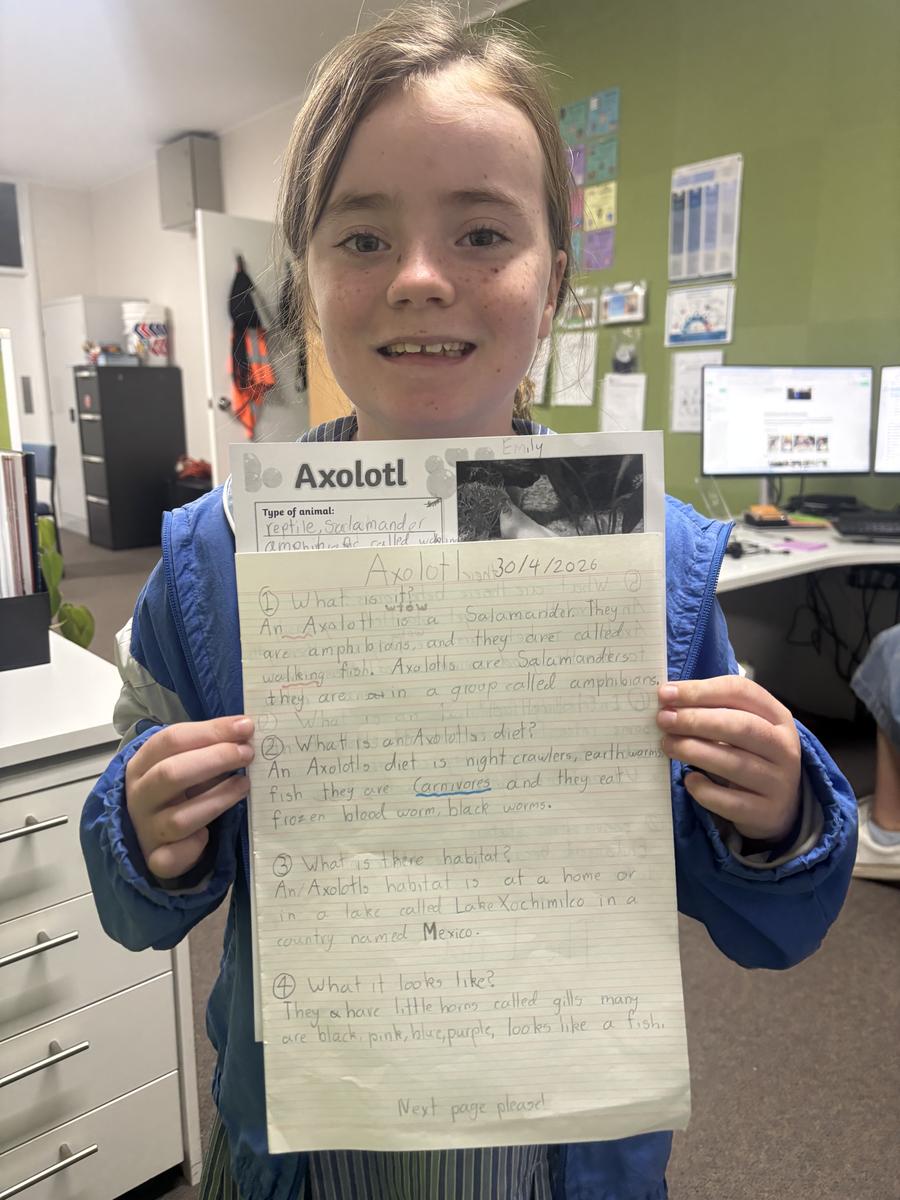 Emily
Axolotl
Type of animal:
reptile, Salamander
Axolotl 30/4/2026
① What is it?
An Axolotl is a Salamander. They
are amphibians, and they are called
walking fish. Axolotls are Salamanders
they are in a group called amphibians.
② What is an Axolotls diet?
An Axolotls diet is night crawlers, earth worms
fish they are Carnivores and they eat
frozen blood worm, black worms.
③ What is there habitat?
An Axolotls habitat is at a home or
in a lake called Lake Xochimilco in a
country named Mexico.
④ What it looks like?
They have little horns called gills many
are black, pink, blue, purple, looks like a fish.
Next page please!